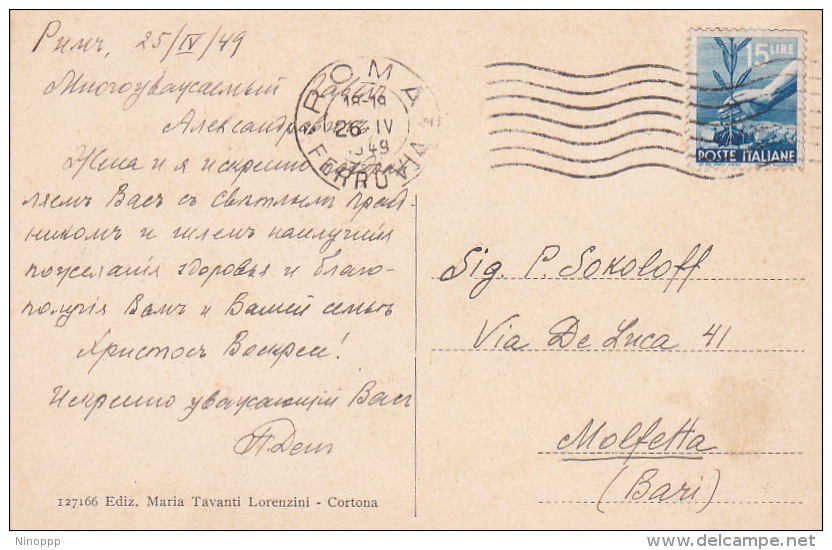 Римъ, 25/IV/49
Многоуважаемый Павелъ
Александровичъ
Жена и я искренно
ляемъ Васъ съ Свѣтлымъ празд-
никомъ и шлемъ наилучшія
пожеланія здоровья и благо-
получія Вамъ и Вашей семьѣ
Христосъ Воскресе!
Искренно уважающій Васъ
127166 Ediz. Maria Tavanti Lorenzini - Cortona
ROMA
18-19
26 IV
1949
FERROVIA
15 LIRE
POSTE ITALIANE
Sig. P. Sokoloff
Via De Luca 41
Molfetta
(Bari)
Ninoppp
delcampe.net